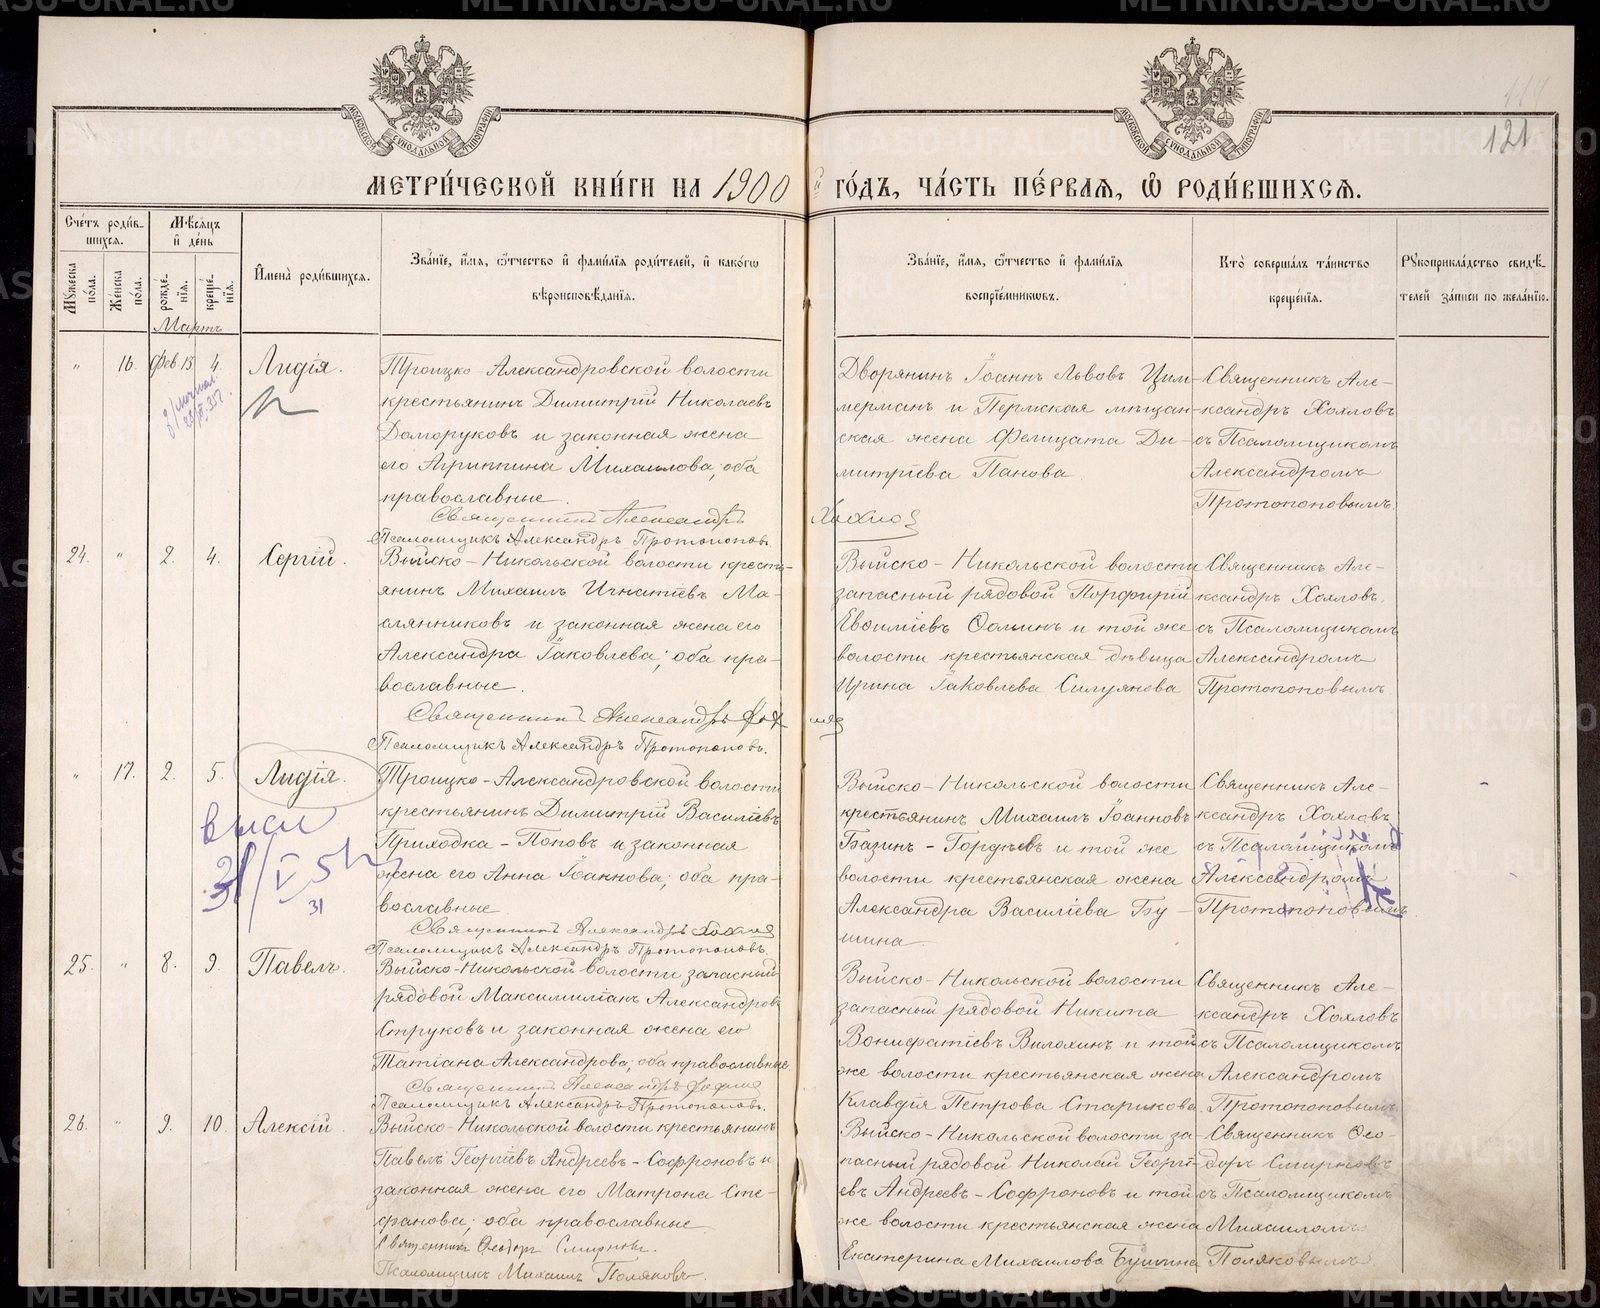 МЕТРИ́ЧЕСКОЙ КНИ́ГИ НА 1900 й ГО́ДЪ, ЧА́СТЬ ПЕ́РВАЯ, Ѽ РОДИ́ВШИХСЯ.
121
Сче́тъ роди́в-
шихся.
Мꙋжеска по́ла.
Же́нска по́ла.
Мѣ́сяцъ
и де́нь
рожде́-
нїя.
креще́-
нїя.
И҆мена̀ роди́вшихся.
Зва́нїе, и҆́мя, ѻ҆́тчество и҆ фами́лїя роди́телей, и҆ како́гѡ
вѣроисповѣ́данїя.
Зва́нїе, и҆́мя, ѻ҆́тчество и҆ фами́лїя
воспрїе́мникѡвъ.
Кто̀ соверша́лъ та́инство
креще́нїя.
Рꙋкоприкла́дство свидѣ́-
телей за́писи по жела́нїю.
Мартъ
" 16. Фев 15 4. Лидія.
Троицко-Александровской волости
крестьянинъ Димитрій Николаевъ
Доморуковъ и законная жена
его Агриппина Михаилова; оба
православные.
Священникъ Александръ Хохловъ
Псаломщикъ Александръ Протопоповъ.
Дворянинъ Іоаннъ Львовъ Цим-
мерманъ и Пермская мѣщан-
ская жена Фелицата Ди-
митріева Панова
Священникъ Але-
ксандръ Хохловъ
съ Псаломщикомъ
Александромъ
Протопоповымъ
24. " 2. 4. Сергій.
Выйско-Никольской волости кресть-
янинъ Михаилъ Игнатіевъ Ма-
слянниковъ и законная жена его
Александра Іаковлева; оба пра-
вославные.
Священникъ Александръ Хохловъ
Псаломщикъ Александръ Протопоповъ.
Выйско-Никольской волости
запасный рядовой Порфирій
Евѳиміевъ Ѳоминъ и той же
волости крестьянская дѣвица
Ирина Іаковлева Силуянова
Священникъ Але-
ксандръ Хохловъ.
съ Псаломщикомъ
Александромъ
Протопоповымъ
" 17. 2. 5. Лидія.
31/V 51
31
Троицко-Александровской волости
крестьянинъ Димитрій Василіевъ
Приходка-Поповъ и законная
жена его Анна Іоаннова; оба пра-
вославные
Священникъ Александръ Хохловъ
Псаломщикъ Александръ Протопоповъ.
Выйско-Никольской волости
крестьянинъ Михаилъ Іоанновъ
Базинъ-Гордѣевъ и той же
волости крестьянская жена
Александра Василіева Бу-
шина.
Священникъ Але-
ксандръ Хохловъ
съ Псаломщикомъ
Александромъ
Протопоповымъ
25. " 8. 9. Павелъ.
Выйско-Никольской волости запасный
рядовой Максимиліанъ Александровъ
Струковъ и законная жена его
Татіана Александрова; оба православные
Священникъ Александръ Хохловъ
Псаломщикъ Александръ Протопоповъ.
Выйско-Никольской волости
запасный рядовой Никита
Вонифатіевъ Вилохинъ и той
же волости крестьянская жена
Клавдія Петрова Старикова.
Священникъ Але-
ксандръ Хохловъ
съ Псаломщикомъ
Александромъ
Протопоповымъ
26. " 9. 10. Алексій.
Выйско-Никольской волости крестьянинъ
Павелъ Георгіевъ Андреевъ-Софроновъ и
законная жена его Матрона Сте-
фанова; оба православные
Священникъ Ѳеодоръ Смирновъ.
Псаломщикъ Михаилъ Поляковъ.
Выйско-Никольской волости за-
пасный рядовой Николай Георгі-
евъ Андреевъ-Софроновъ и той
же волости крестьянская жена
Екатерина Михаилова Бушина
Священникъ Ѳео-
доръ Смирновъ
съ Псаломщикомъ
Михаиломъ
Поляковымъ
METRIKI.GASO-URAL.RU